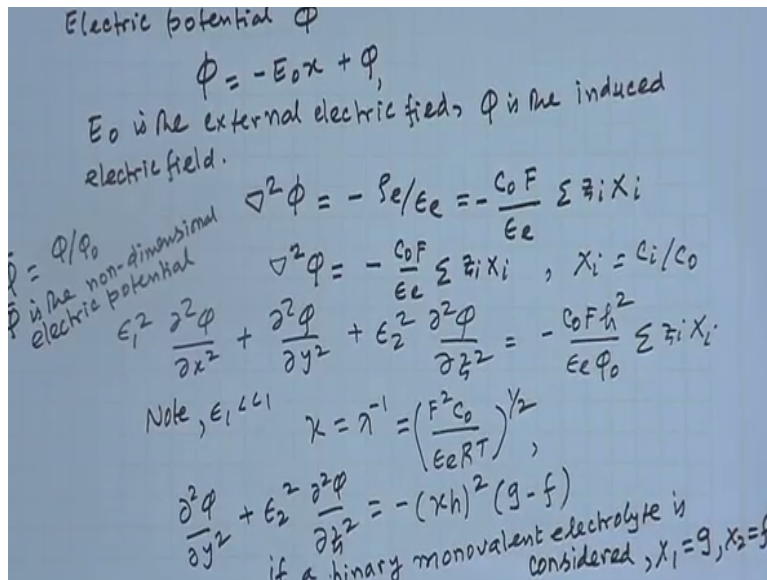 Electric potential Φ
ϕ = -E₀x + φ,
E₀ is the external electric field, φ is the induced
electric field.
∇²ϕ = - ρe/εe = - C₀F/εe Σ zᵢXᵢ
∇²φ = - C₀F/εe Σ zᵢXᵢ , Xᵢ = Cᵢ/C₀
φ̄ = φ/φ₀
φ̄ is the non-dimensional
electric potential
ε₁² ∂²φ/∂x² + ∂²φ/∂y² + ε₂² ∂²φ/∂z² = - C₀Fh²/εeφ₀ Σ zᵢXᵢ
Note, ε₁<<1
κ = λ⁻¹ = (F²C₀/εeRT)^1/2,
∂²φ/∂y² + ε₂² ∂²φ/∂z² = -(κh)² (g-f)
if a binary monovalent electrolyte is
considered, X₁=g, X₂=f